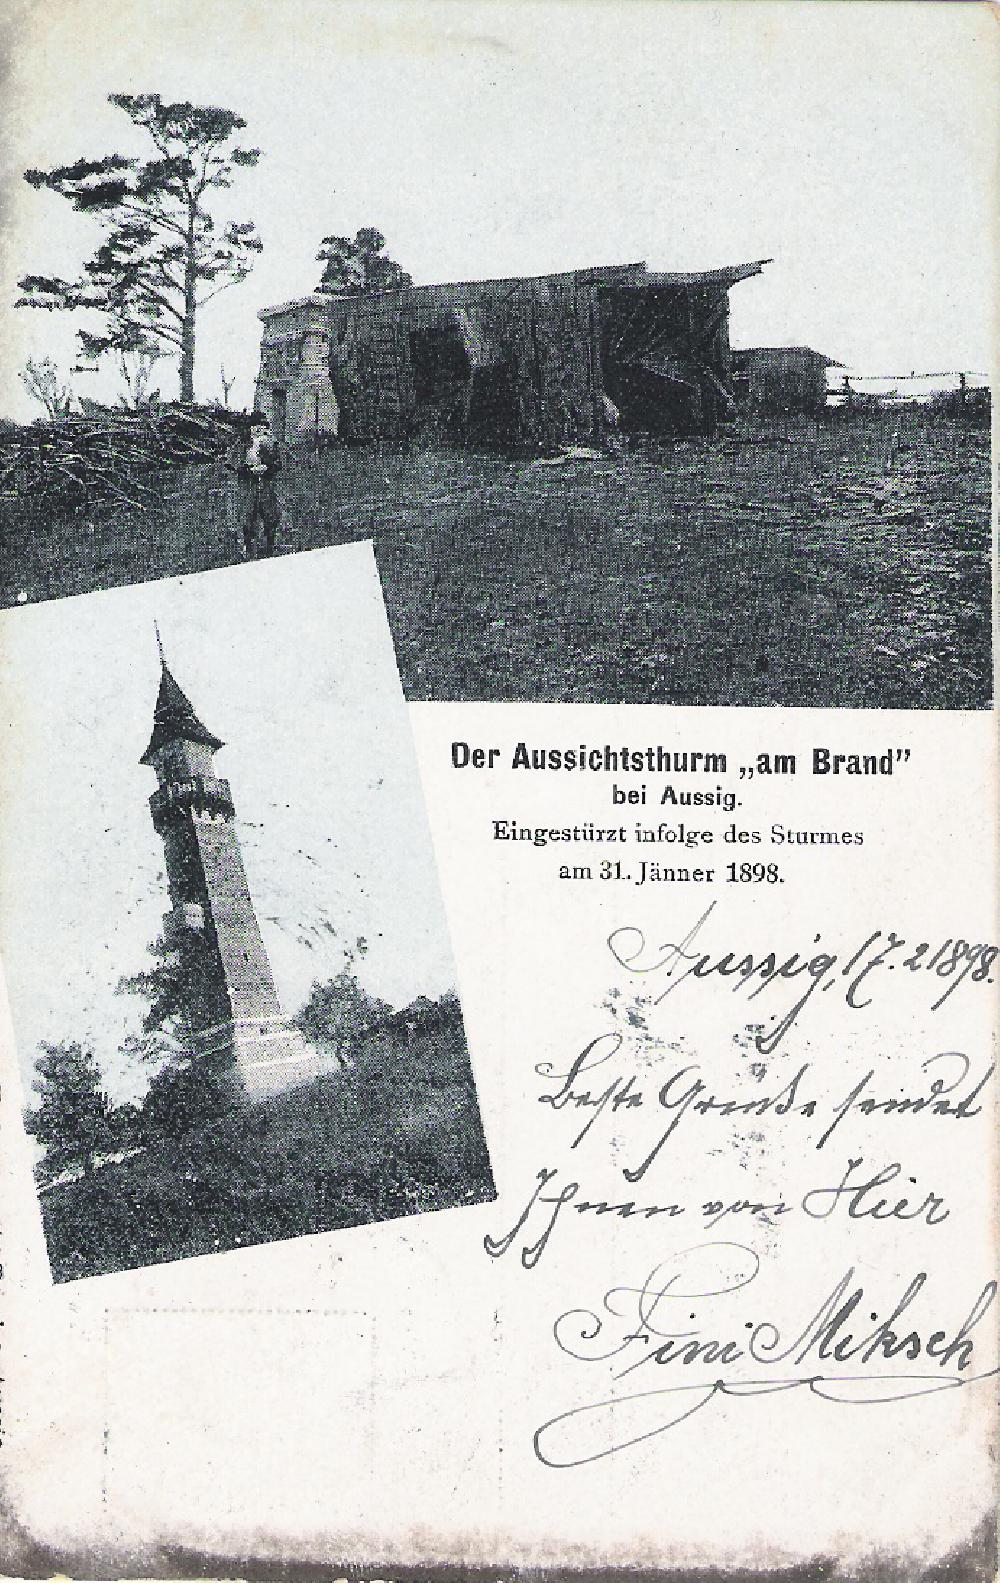 Der Aussichtsthurm „am Brand”
bei Aussig.
Eingestürzt infolge des Sturmes
am 31. Jänner 1898.
Aussig, 17.2 1898.
Beste Grüße sendet
Ihnen von Hier
Fini Miksch